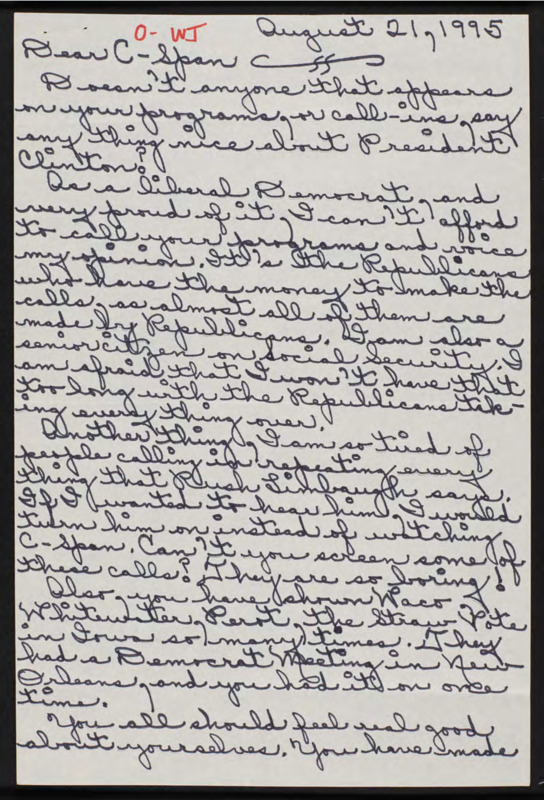 O-WJ
August 21, 1995
Dear C-Span
Doesn't anyone that appears
on your programs, or call-ins, say
any thing nice about President
Clinton?
As a liberal Democrat, and
very proud of it, I can't afford
to call your programs and voice
my opinion. It's the Republicans
who have the money to make the
calls, as almost all of them are
made by Republicans. I am also a
senior citizen on social security. I
am afraid that I won't have that
too long with the Republicans tak-
ing every thing over.
Another thing, I am so tired of
people calling in repeating every
thing that Rush Limbaugh says.
If I wanted to hear him, I would
turn him on instead of watching
C-Span. Can't you screen some of
these calls? They are so boring!
Also, you have shown Waco,
Whitewater, Perot, the Straw Vote
in Iowa so many times. They
had a Democrat Meeting in New
Orleans, and you had it on once
time.
You all should feel real good
about yourselves. You have made